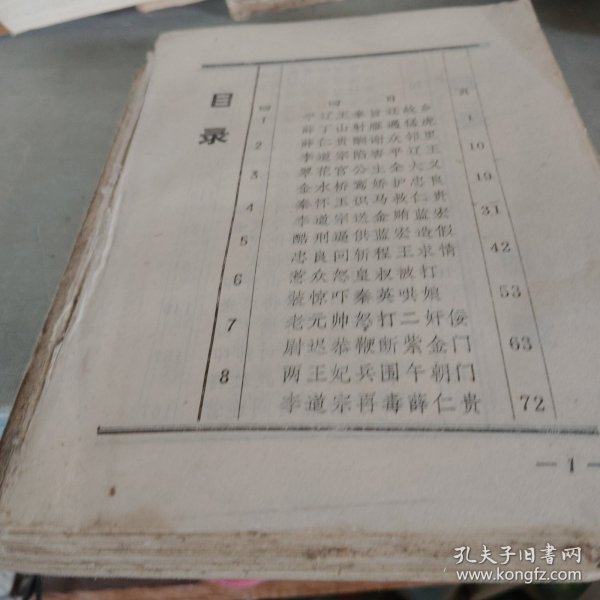 目录
回 回目 页
1 平辽王奉旨还故乡 1
薛丁山射雁遇猛虎
2 薛仁贵酬谢众邻里 10
李道宗陷害平辽王
3 翠花宫公主全大义 19
金水桥鸾娇护忠良
4 秦怀王识马救仁贵 31
李道宗送金贿蓝宏
5 酷刑逼供蓝宏造假 42
忠良问斩程王求情
6 惹众怒皇叔被打 53
装惊吓秦英哄娘
7 老元帅怒打二奸佞 63
尉迟恭鞭断紫金门
8 两王妃兵围午朝门 72
李道宗再毒薛仁贵
— 1 —
孔夫子旧书网
www.kongfz.com